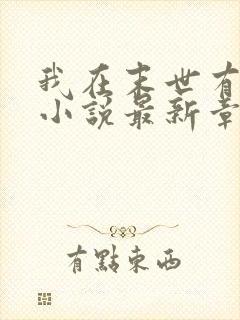 我在末世有
小說最新章
有點東西